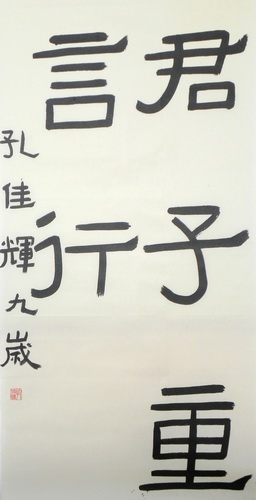 君子重
言行
孔佳輝九歲